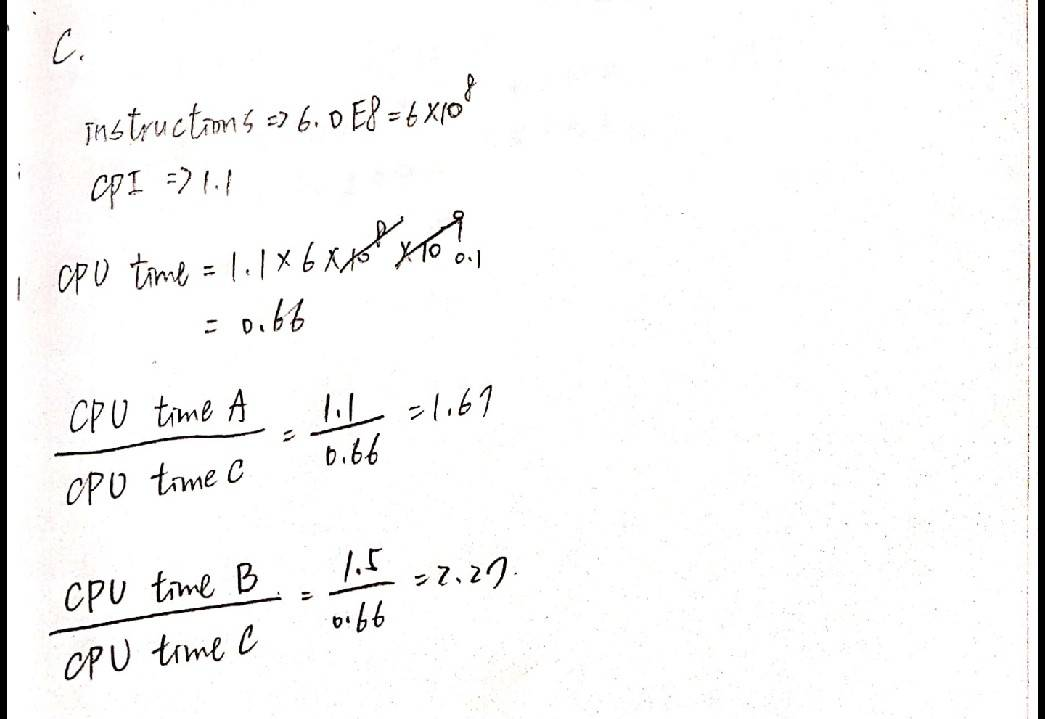 C.
instructions => 6.0E8 = 6×10^8
CPI => 1.1
CPU time = 1.1×6×10^8×10^-9 0.1
= 0.66
CPU time A / CPU time C = 1.1 / 0.66 = 1.67
CPU time B / CPU time C = 1.5 / 0.66 = 2.27.